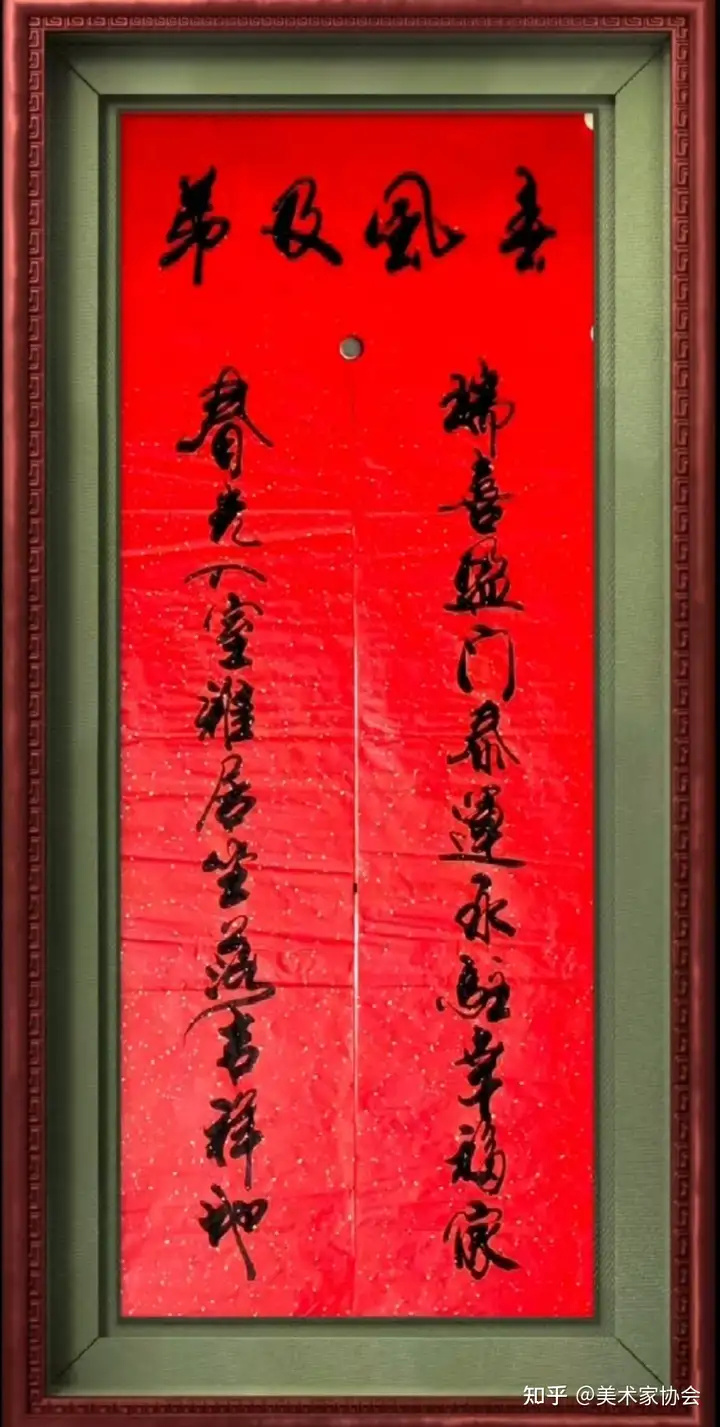 春風及第
瑞喜盈门泰運永駐幸福家
春光入室雅居坐落吉祥地
知乎 @美术家协会